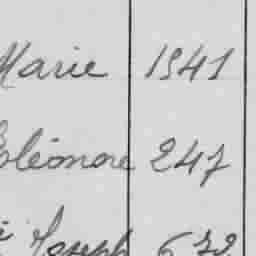 Marie 1941
Eléonore 247
Joseph 672